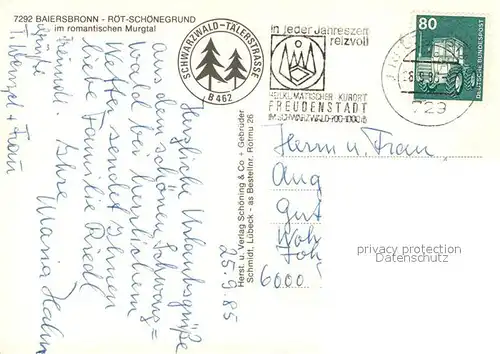 7292 BAIERSBRONN - RÖT-SCHÖNEGRUND
im romantischen Murgtal
SCHWARZWALD-TÄLERSTRASSE
B 462
in jeder Jahreszeit
reizvoll
HEILKLIMATISCHER KURORT
FREUDENSTADT
IM SCHWARZWALD 700-1000 m
80
DEUTSCHE BUNDESPOST
729
Herzliche Urlaubsgrüße
aus dem schönen Schwarz=
wald bei herrlichem
Wetter sendet Ihnen
liebe Familie Riedl
Ihre Maria Hahn
Grüße
T. Wenzel + Frau
25.9.85
Herst. u. Verlag Schöning & Co + Gebrüder
Schmidt, Lübeck - as Bestellnr. Rotmu 26
Herrn u. Frau
Aug
Gut
Woh
6000
privacy protection
Datenschutz